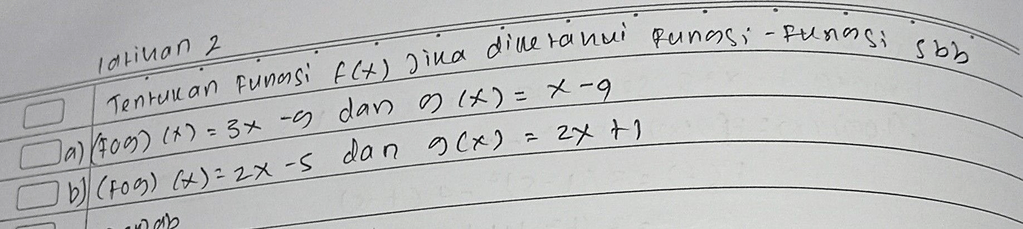 latihan 2
Tentukan fungsi f(x) jika diketahui fungsi-fungsi sbb
a) (fog) (x) = 3x - 9 dan g (x) = x - 9
b) (fog) (x) = 2x - 5 dan g(x) = 2x + 1